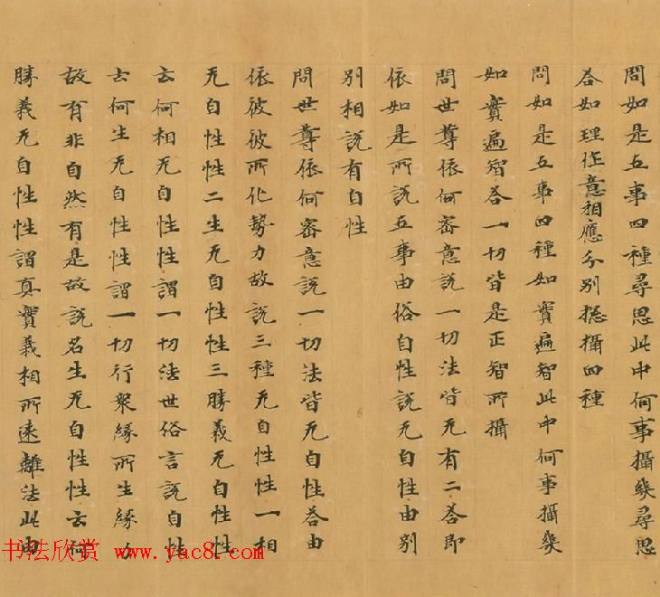 問如是五事四種尋思此中何事攝幾尋思
答如理作意相應分別揔攝四種
問如是五事四種如實遍智此中何事攝幾
如實遍智答一切皆是正智所攝
問世尊依何審意說一切法皆无有二答即
依如是所說五事由俗自性說无自性由別
別相說有自性
問世尊依何審意說一切法皆无自性答由
依彼彼所化勢力故說三種无自性性一相
无自性性二生无自性性三勝義无自性性
云何相无自性性謂一切法世俗言說自性
云何生无自性性謂一切行衆緣所生緣力
故有非自然有是故說名生无自性性云何
勝義无自性性謂真實義相所遠離法此由
书法欣赏 www.yac8.com